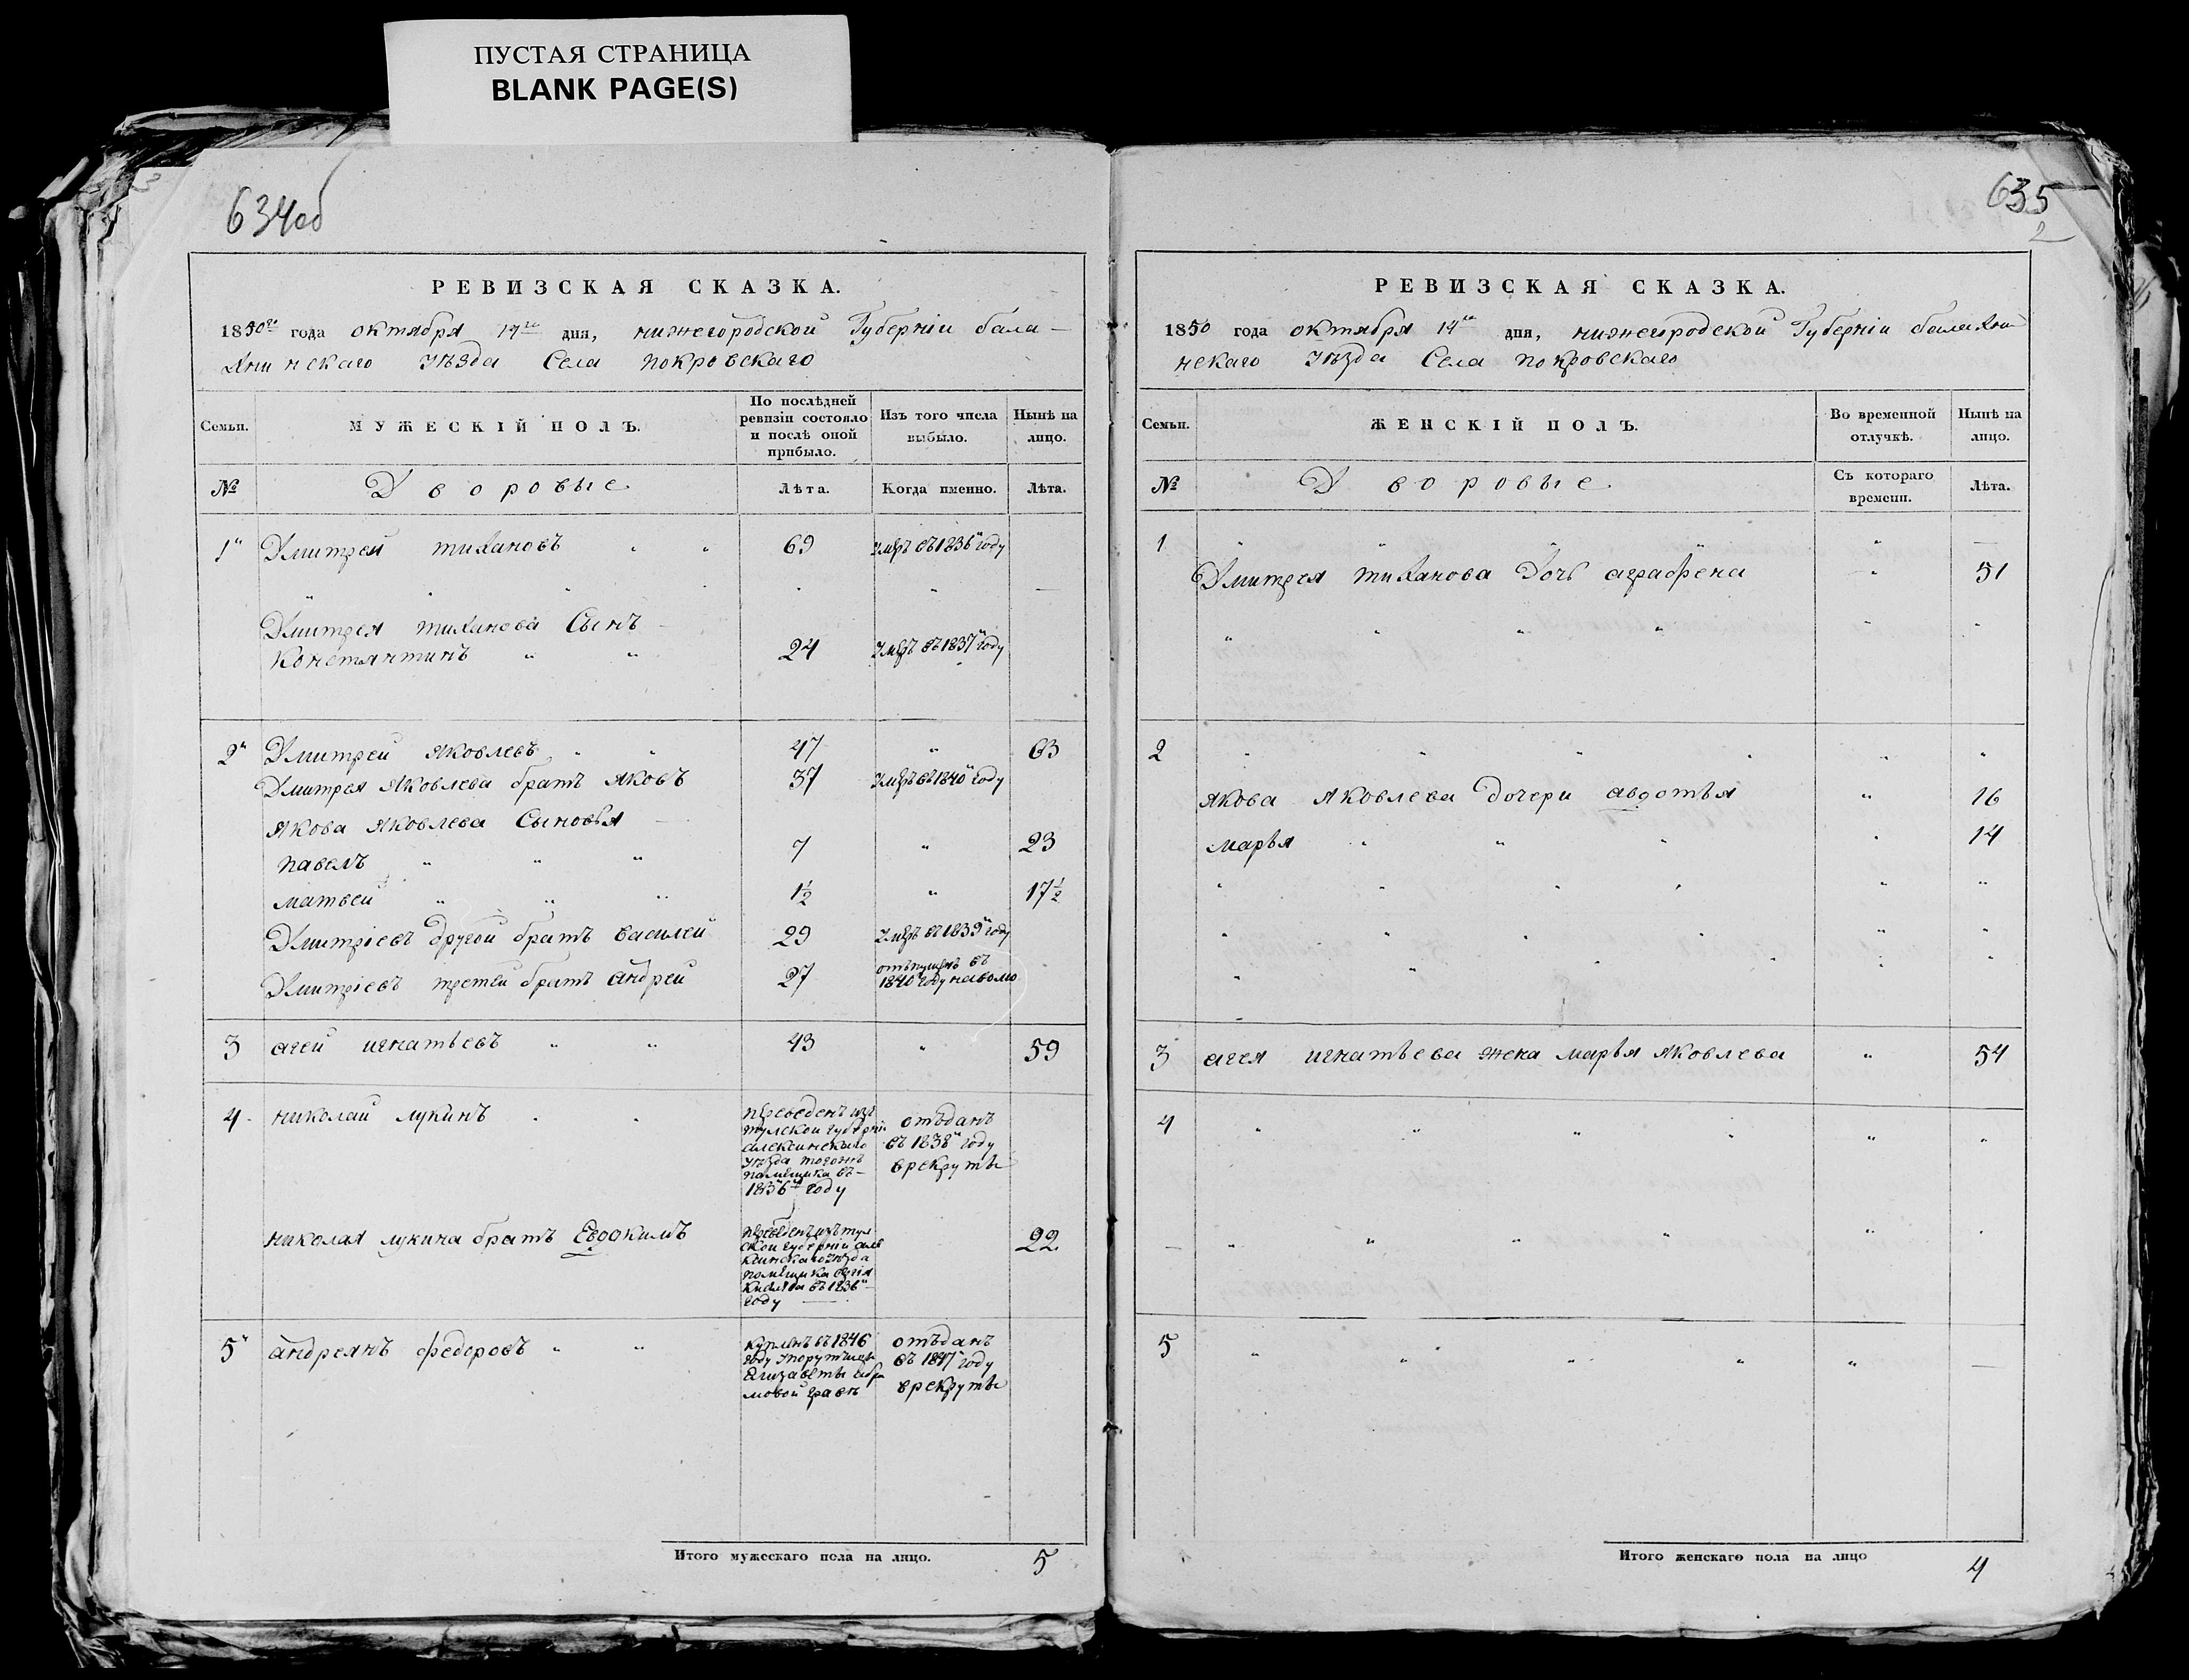 ПУСТАЯ СТРАНИЦА
BLANK PAGE(S)
634об
РЕВИЗСКАЯ СКАЗКА.
1850го года октября 14го дня, нижегородской Губерніи бала-
хнинскаго уѣзда Села покровскаго
Семьи. МУЖЕСКІЙ ПОЛЪ. По послѣдней ревизіи состояло и послѣ оной прибыло. Изъ того числа выбыло. Нынѣ на лицо.
№ Дворовые Лѣта. Когда именно. Лѣта.
1 Дмитрей тихановъ 69 умръ въ 1836 году
Дмитрея тиханова Сынъ
Констянтинъ 24 умръ въ 1837 году
2 Дмитрей яковлевъ 47 63
Дмитрея яковлева братъ яковъ 37 умръ въ 1840 году
якова яковлева Сыновья
павелъ 7 23
матвей 1½ 17½
Дмитріевъ другой братъ василей 29 умръ въ 1839 году
Дмитріевъ третей братъ андрей 27 отъпущенъ въ
1840 году наволю
3 агей игнатьевъ 43 59
4 николай лукинъ переведенъ изъ
тулской губерніи
алексинскаго
уѣзда тогожъ
помещика въ
1836м году
отъданъ
въ 1838 году
врекруты
николая лукина братъ Евдокимъ 22
переведенъ изъ тул
ской губерніи але
ксинскаго уѣзда
помещика
въ 1836
году
5 андреянъ федоровъ
купленъ въ 1846
году
Елизаветы абра
мовой
отъданъ
въ 1847 году
врекруты
Итого мужескаго пола на лицо. 5
635
2
РЕВИЗСКАЯ СКАЗКА.
1850 года октября 14го дня, нижегородской Губерніи балахни
нскаго уѣзда Села покровскаго
Семьи. ЖЕНСКІЙ ПОЛЪ. Во временной отлучкѣ. Нынѣ на лицо.
№ Дворовые Съ котораго времени. Лѣта.
1
Дмитрея тиханова Дочь аграфена 51
2
якова яковлева дочери авдотья 16
марья 14
3 агея игнатьева жена марья яковлева 54
4
5
Итого женскаго пола на лицо 4